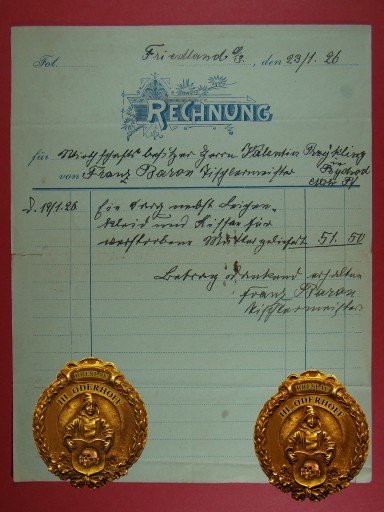 Fol.
Friedland O/S., den 23/1. 26
RECHNUNG
für Wirtschaftsbesitzer Herrn Valentin
von Franz Baron Tischlermeister
D. 19/1. 26. Ein Sarg nebst Leichen-
kleid und Kissen für
verstorbene Mutter geliefert. 51. 50
Betrag dankend erhalten
Franz Baron
Tischlermeister
BRESLAU
III. ODERHOFF
BRESLAU
III. ODERHOFF